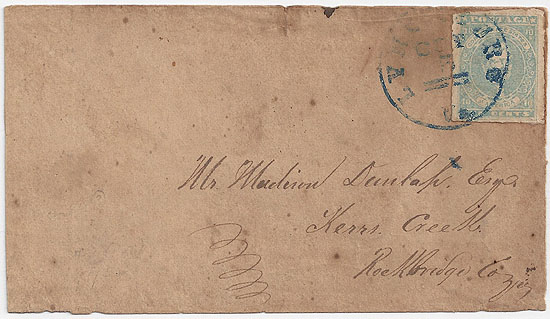 POSTAGE
CENTS
Mr. Madison Dunlap. Esqr
Kerrs Creek.
Rockbridge Co